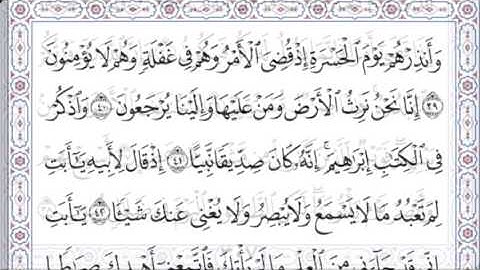 وَأَنذِرْهُمْ يَوْمَ ٱلْحَسْرَةِ إِذْ قُضِىَ ٱلْأَمْرُ وَهُمْ فِى غَفْلَةٍ وَهُمْ لَا يُؤْمِنُونَ
٣٩ إِنَّا نَحْنُ نَرِثُ ٱلْأَرْضَ وَمَنْ عَلَيْهَا وَإِلَيْنَا يُرْجَعُونَ ٤٠ وَٱذْكُرْ
فِى ٱلْكِتَٰبِ إِبْرَٰهِيمَ ۚ إِنَّهُۥ كَانَ صِدِّيقًا نَّبِيًّا ٤١ إِذْ قَالَ لِأَبِيهِ يَٰٓأَبَتِ
لِمَ تَعْبُدُ مَا لَا يَسْمَعُ وَلَا يُبْصِرُ وَلَا يُغْنِى عَنكَ شَيْـًٔا ٤٢ يَٰٓأَبَتِ
إِنِّى قَدْ جَآءَنِى مِنَ ٱلْعِلْمِ مَا لَمْ يَأْتِكَ فَٱتَّبِعْنِىٓ أَهْدِكَ صِرَٰطًا